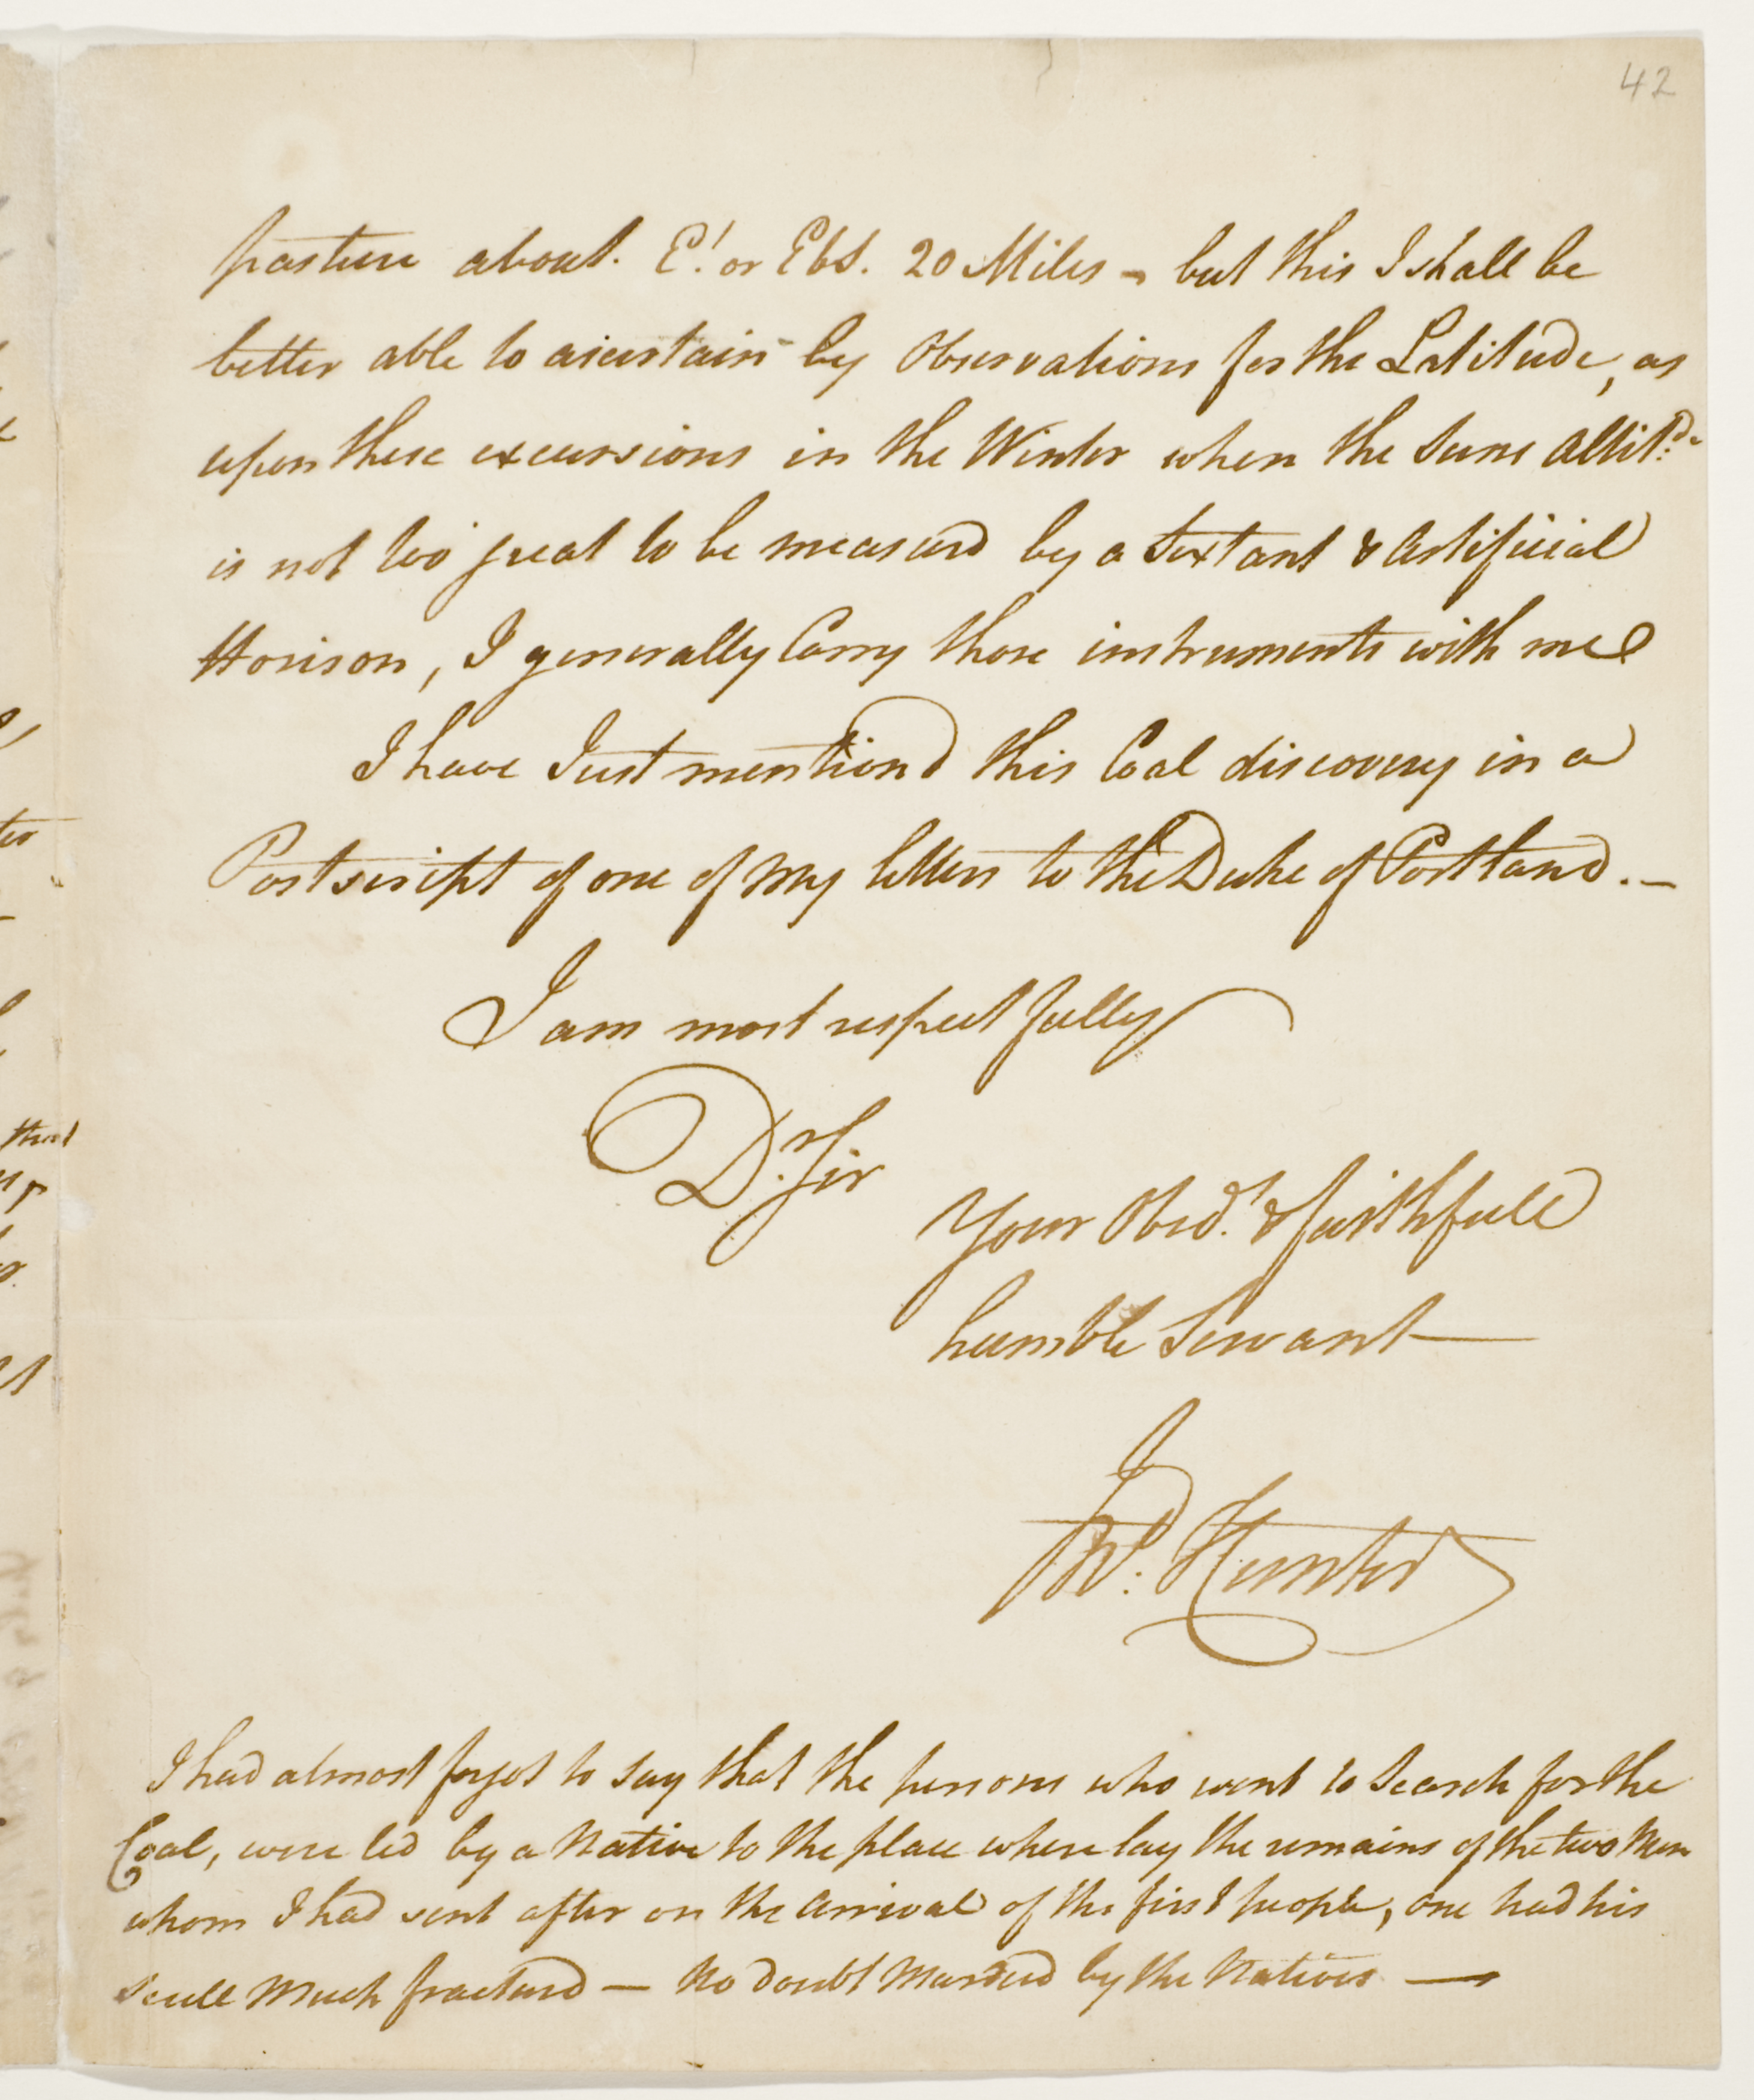 42
pasture about. E! or EbS. 20 Miles - but this I shall be
better able to asertain by Observations for the Latitude, as
upon these excursions in the Winter when the Suns Altitde
is not too great to be measurd by a Sextant & Artificial
Horison, I generally Carry those instruments with me
I have Just mention'd this Coal discovery in a
Postscript of one of my letters to the Duke of Portland. _
I am most respectfully
Dr. Sir
Your Obedt. & faithfull
humble Servant
Jno. Hunter
I had almost forgot to say that the persons who went to Search for the
Coal, were led by a Native to the place where lay the remains of the two Men
whom I had sent after on the Arrival of the first people, one had his
scull Much fracturd — No doubt Murderd by the Natives —